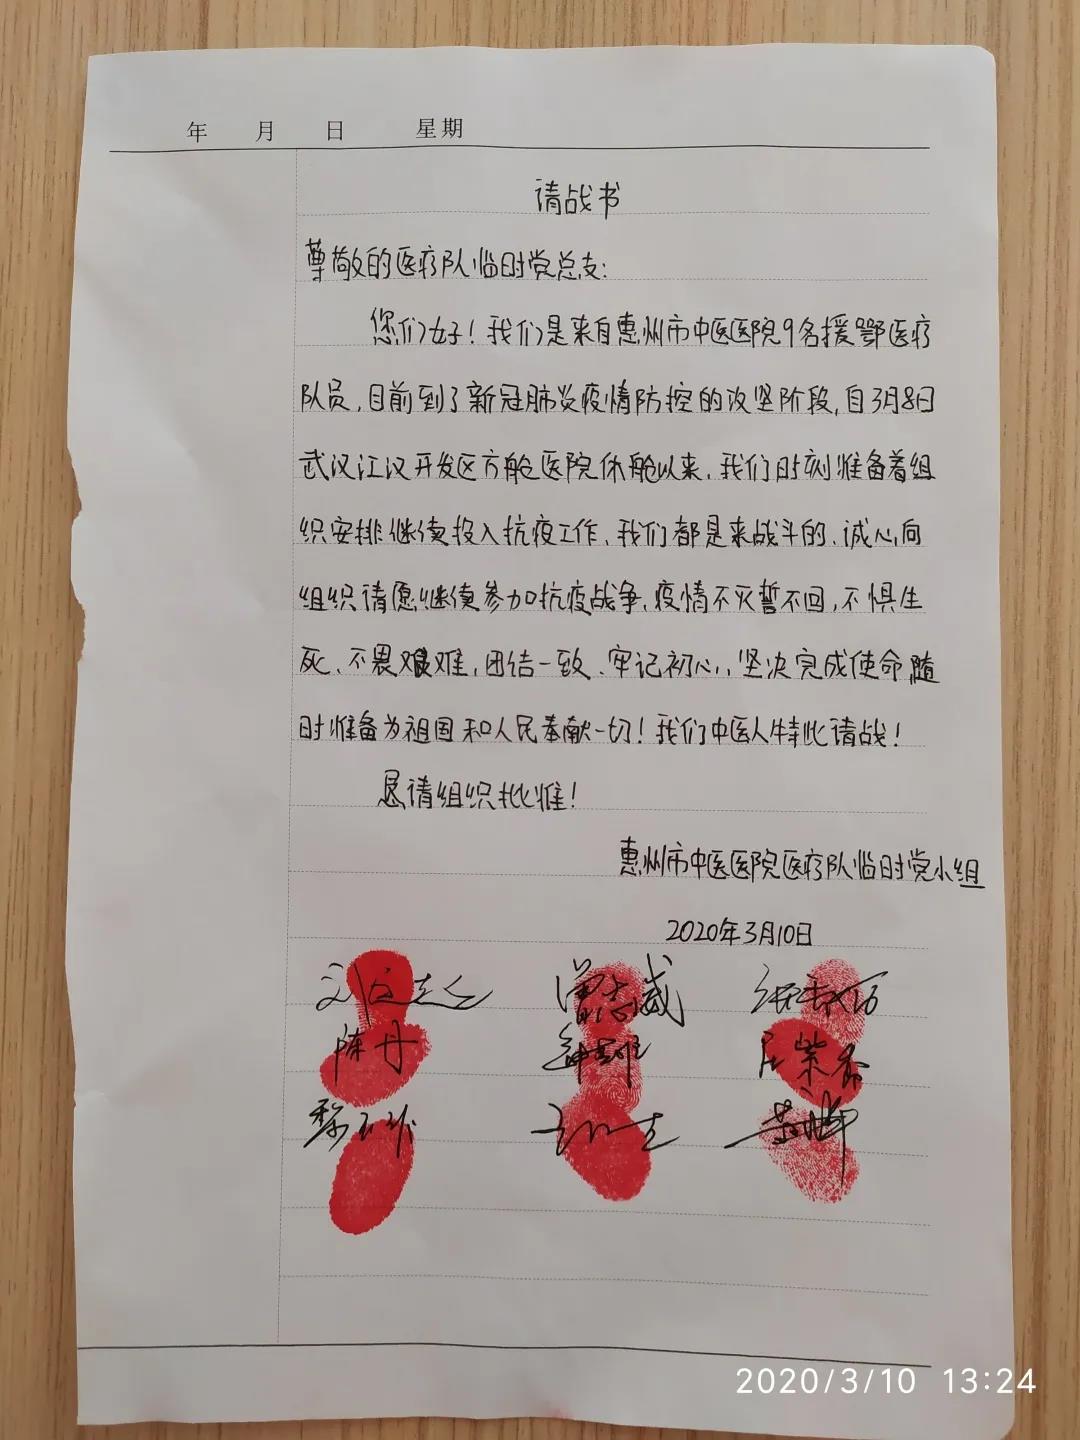 年 月 日 星期
请战书
尊敬的医疗队临时党总支:
您们好!我们是来自惠州市中医医院9名援鄂医疗
队员,目前到了新冠肺炎疫情防控的攻坚阶段,自3月8日
武汉江汉开发区方舱医院休舱以来,我们时刻准备着组
织安排继续投入抗疫工作、我们都是来战斗的、诚心向
组织请愿继续参加抗疫战争,疫情不灭誓不回,不惧生
死、不畏艰难,团结一致、牢记初心,坚决完成使命,随
时准备为祖国和人民奉献一切!我们中医人特此请战!
恳请组织批准!
惠州市中医医院医疗队临时党小组
2020年3月10日
曾志威
陈丹 紫香
2020/3/10 13:24